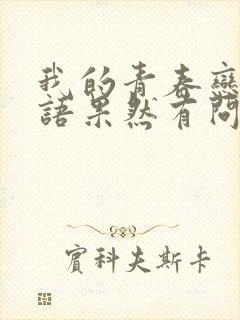 我的青春戀
語果然有問
賓科夫斯卡